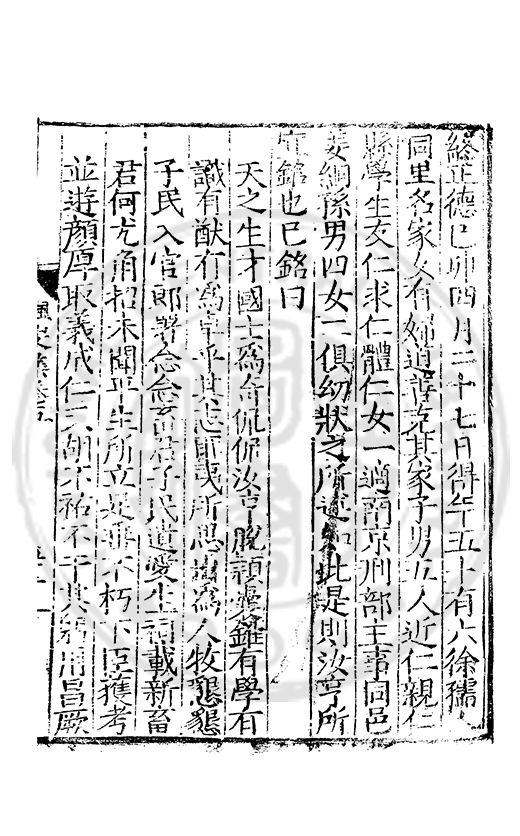 終正德己卯四月二十七日得年五十有六徐孺人
同里名家女有婦道善克其家子男五人近仁親仁
縣學生友仁求仁體仁女一適南京刑部主事同邑
姜綱孫男四女二俱幼狀之所述如此是則汝亨所
宜銘也已銘曰
天之生才國士為奇侃侃汝亨脫穎囊錐有學有
識有猷有為卓乎其志匪夷所思出為人牧懇懇
子民入官郎署念念畜君子民遺愛生祠載新畜
君何尤角招未聞平生所立是垂不朽下臣獲考
並遊顏厚取義成仁天胡不祐不于其躬用昌厥